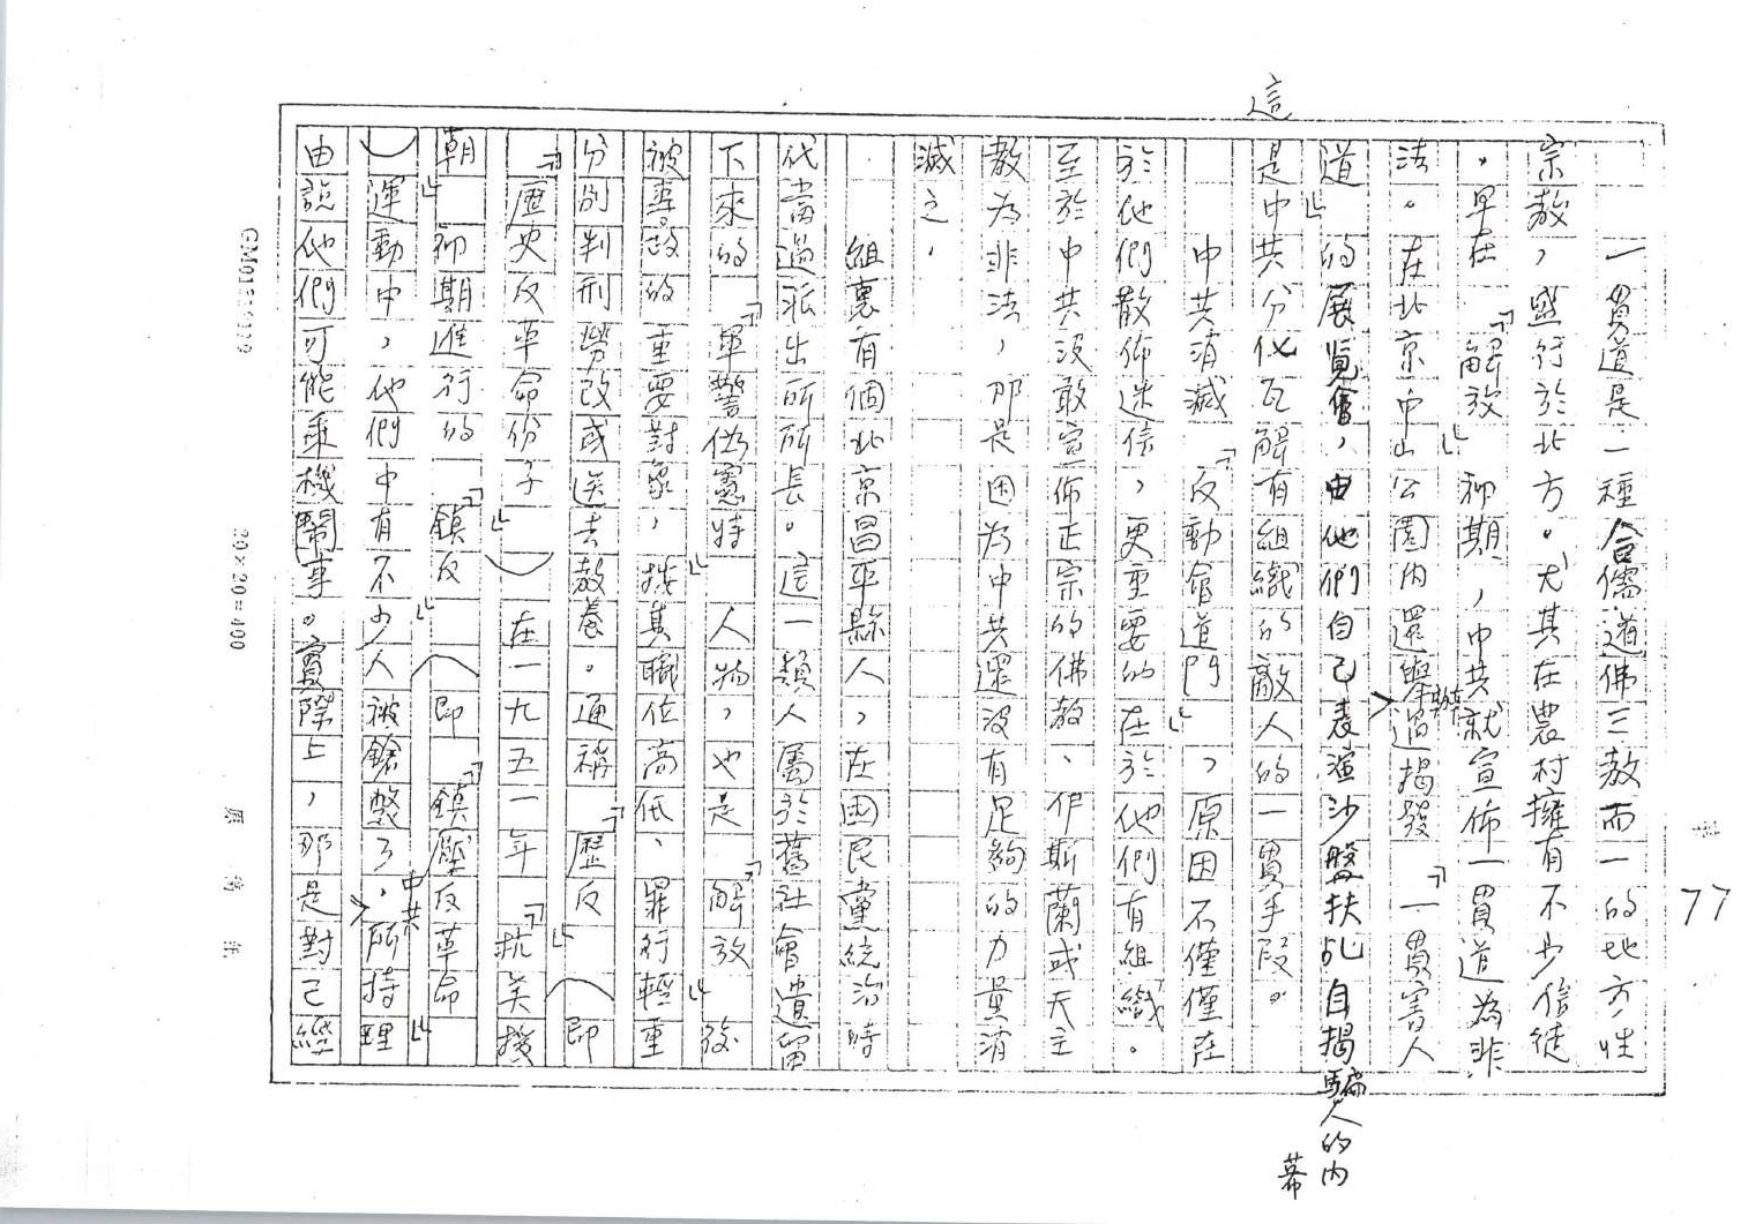 一貫道是一種合儒道佛三教而一的地方性
宗教，盛行於北方。尤其在農村擁有不少信徒
。早在「解放」初期，中共就宣佈一貫道為非
法。在北京中山公園內還舉辦過揭發「一貫害人
道」的展覧會，由他們自己表演沙盤扶乩自揭騙人的內幕
這是中共分化瓦解有組織的敵人的一貫手段。
中共消滅「反動會道門」，原因不僅僅在
於他們散佈迷信，更重要的在於他們有組織。
至於中共沒敢宣佈正宗的佛教、伊斯蘭或天主
教為非法，那是因為中共還沒有足夠的力量消
滅之，
組裏有個北京昌平縣人，在国民黨統治時
代當過派出所所長。這一類人屬於舊社會遺留
下來的「軍警偽憲特」人物，也是「解放」後
被專政的重要對象，按其職位高低、罪行輕重
分別判刑勞改或送去教養。通稱「歷反」（即
「歷史反革命份子」）在一九五一年「抗美援
朝」初期進行的「鎮反」（即「鎮壓反革命」
）運動中，他們中有不少人被鎗斃了，中共所持理
由說他們可能乘機鬧事。實際上，那是對己經
77
20×20=400